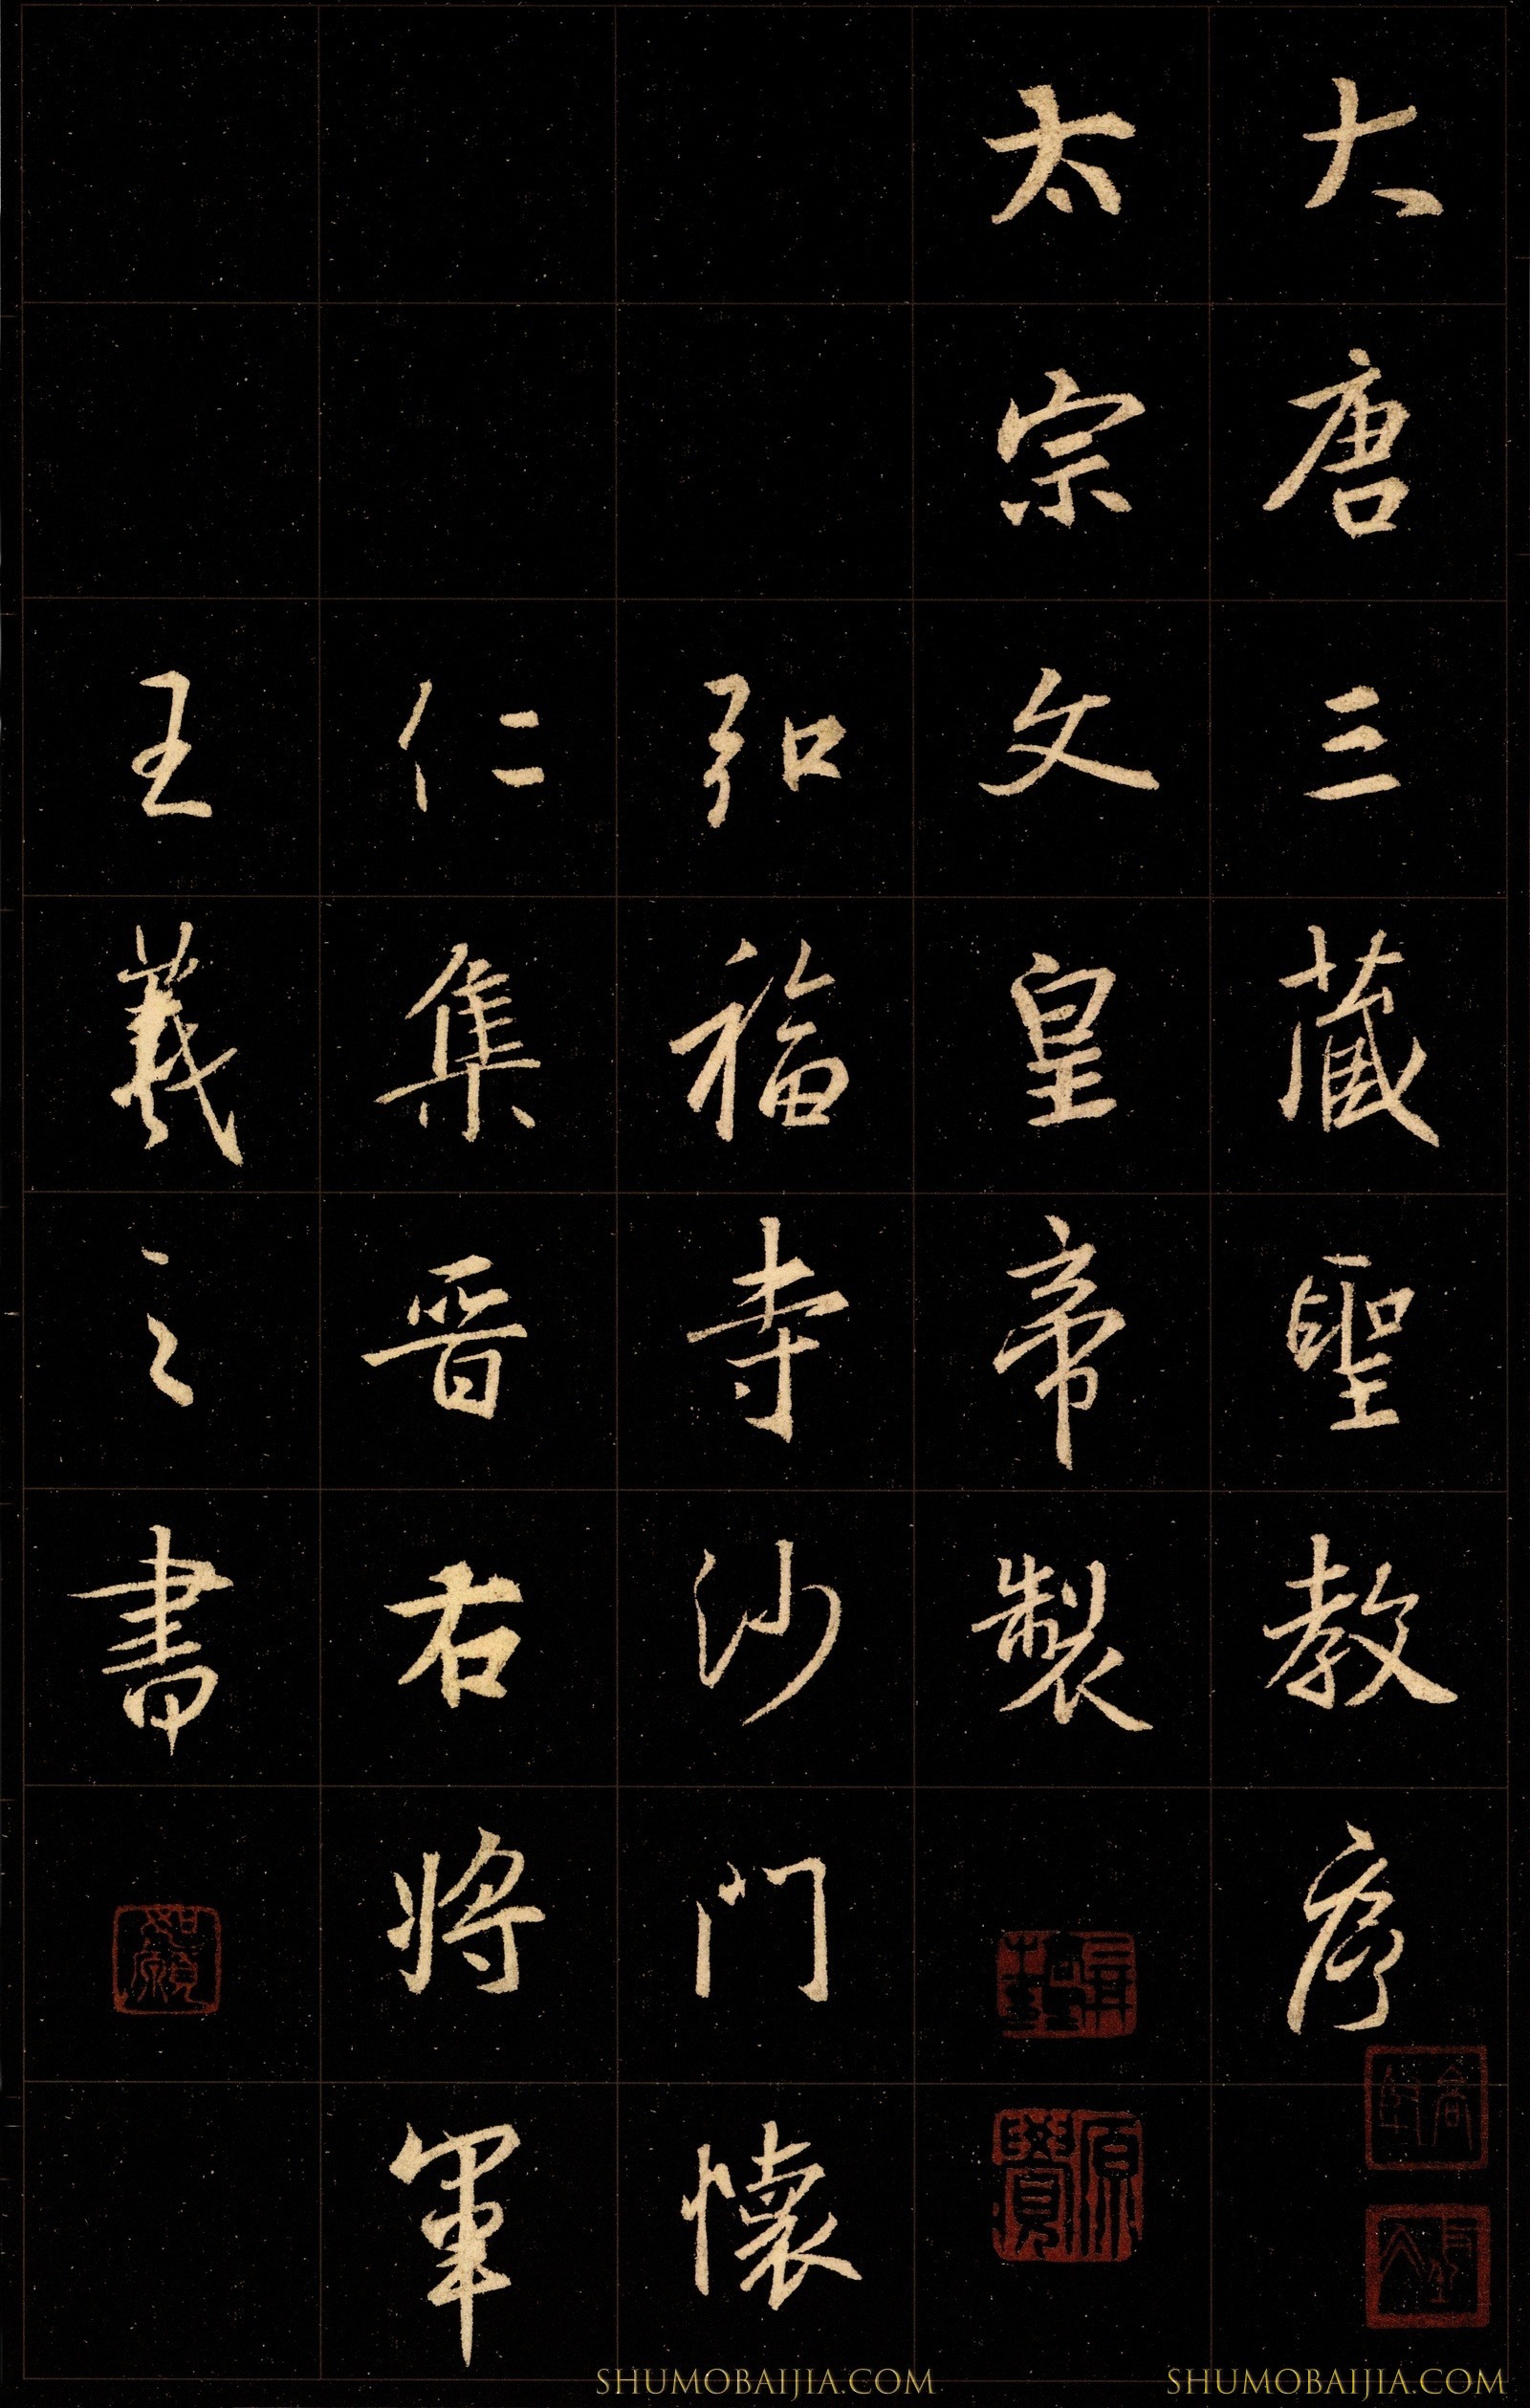 大唐三藏聖教序
太宗文皇帝製
弘福寺沙門懷
仁集晉右將軍
王羲之書
如願
原覺
SHUMOBAIJIA.COM
SHUMOBAIJIA.COM